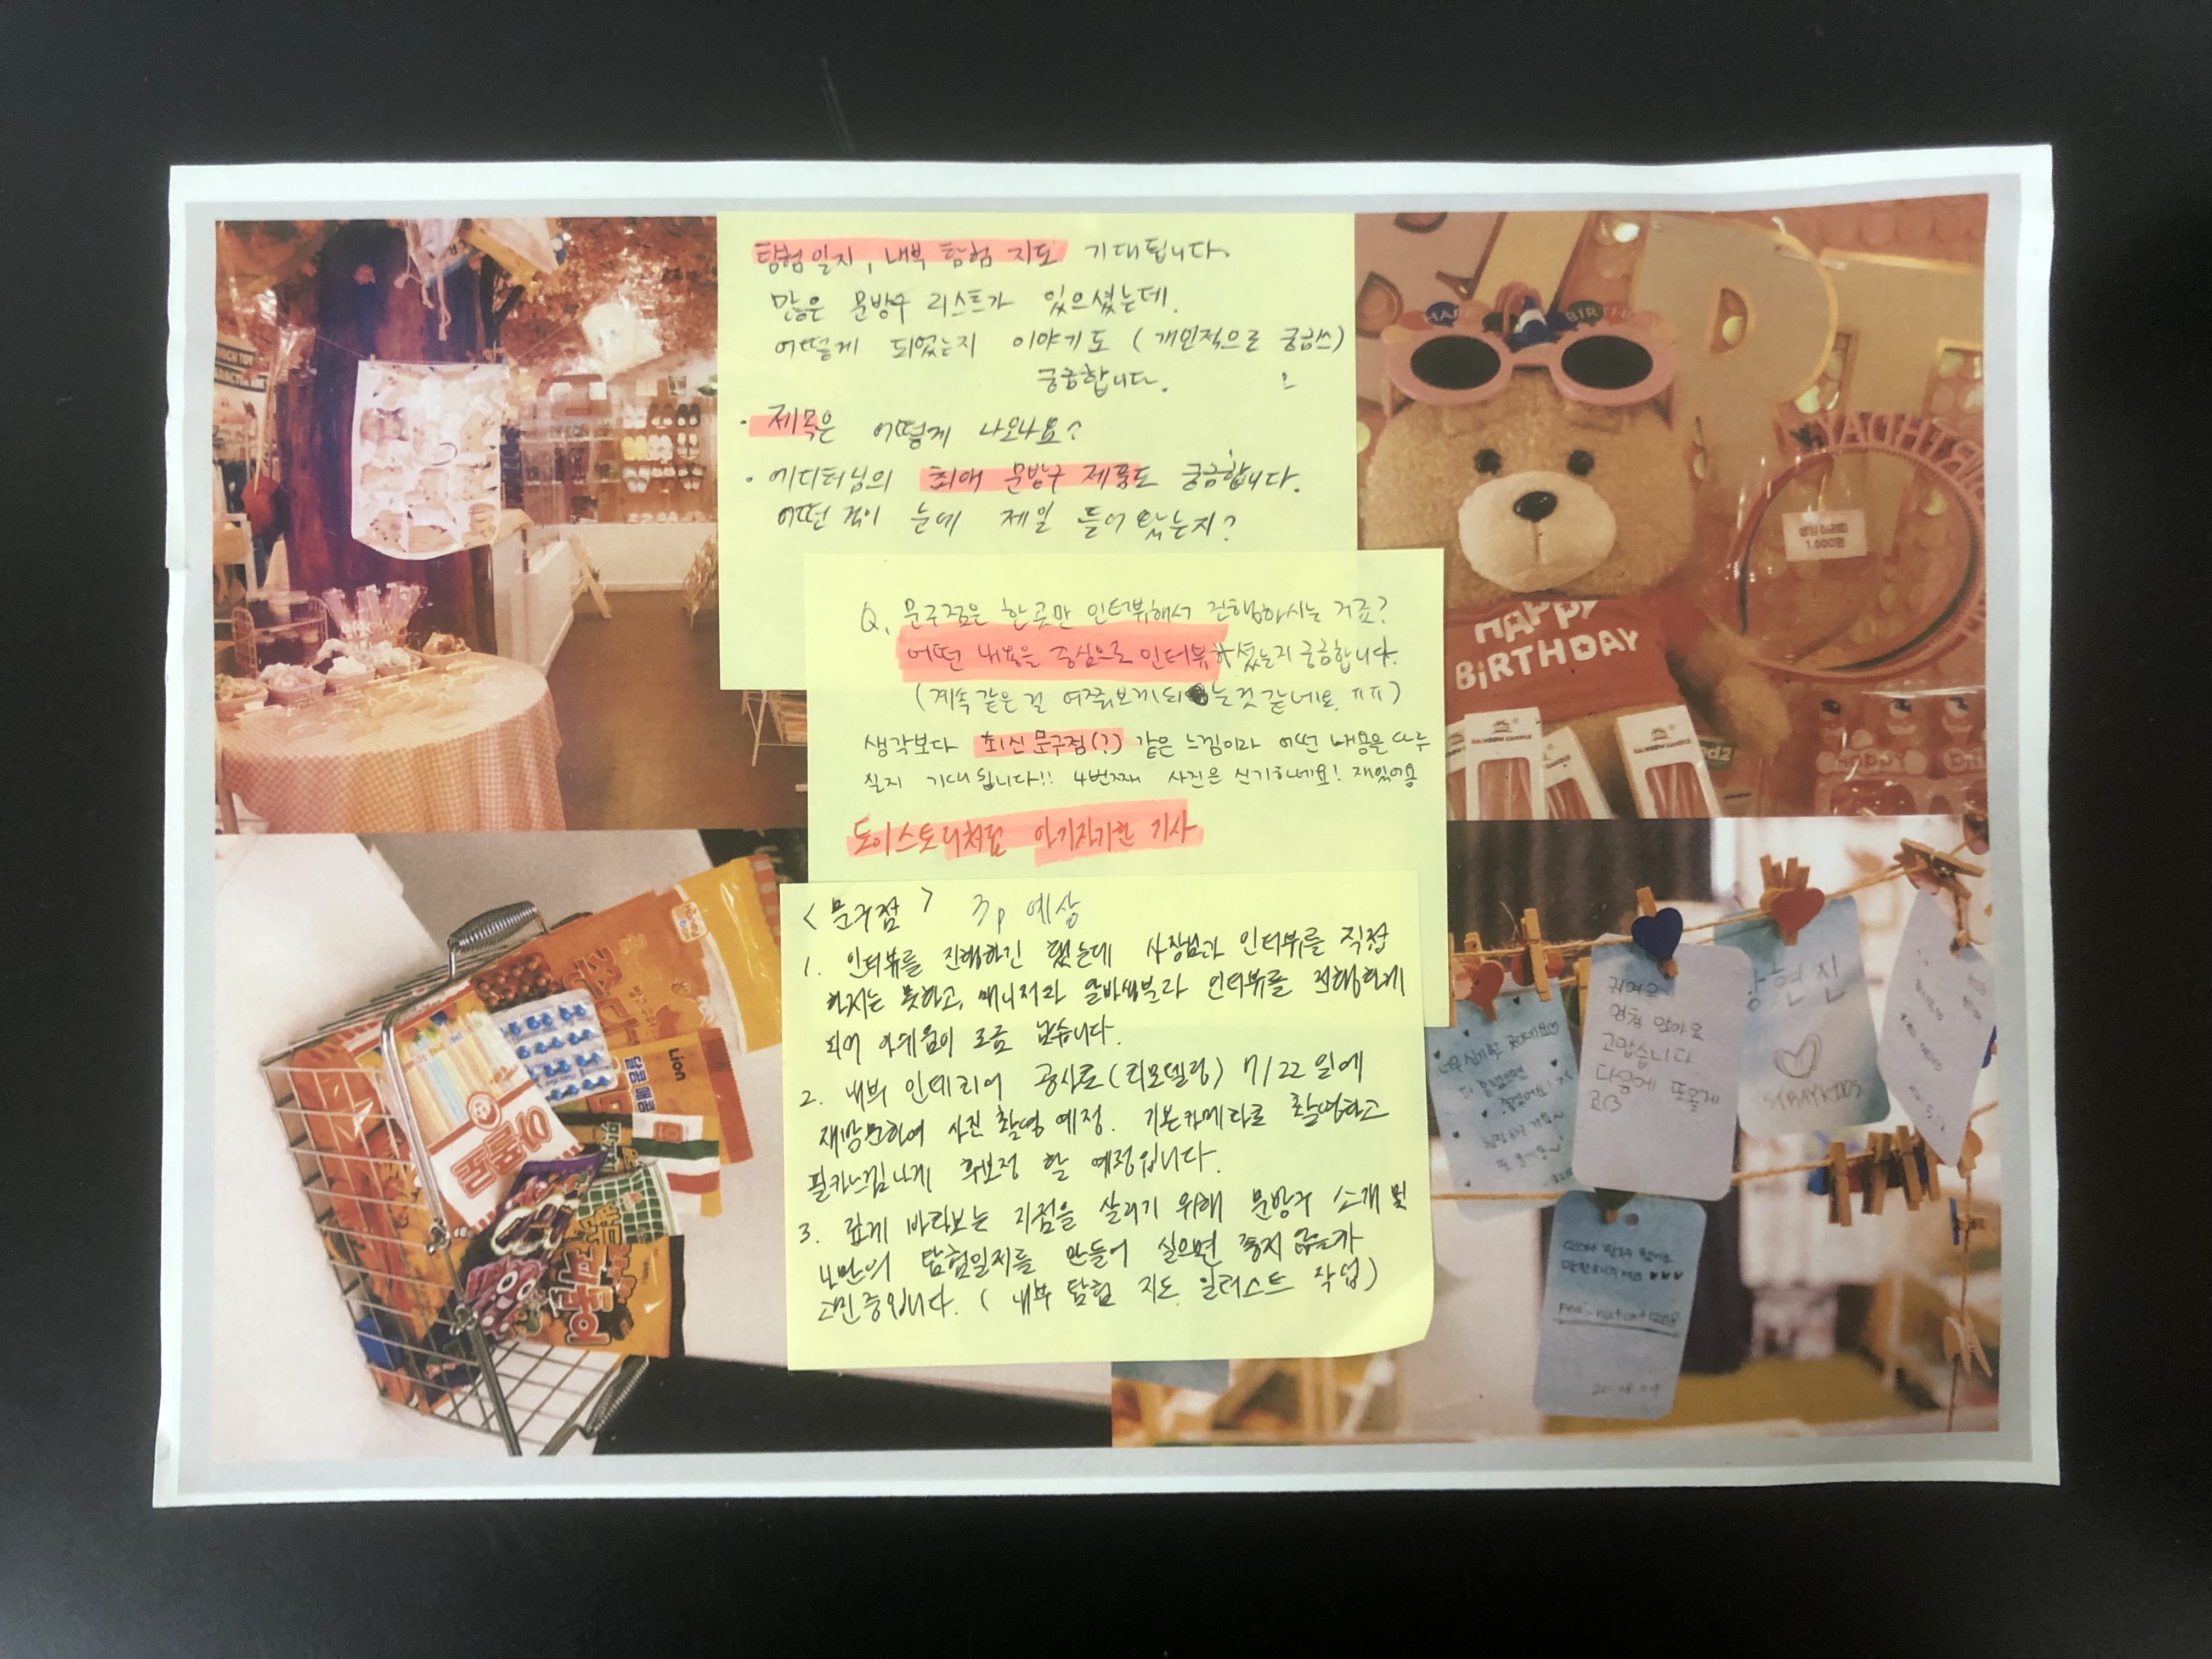 탐험일지, 내부 탐험 지도 기대됩니다.
많은 문방구 리스트가 있으셨는데.
어떻게 되었는지 이야기도 (개인적으로 궁금쓰)
궁금합니다.
· 제목은 어떻게 나오나요?
· 에디터님의 최애 문방구 제품도 궁금합니다.
어떤 것이 눈에 제일 들어왔는지?
Q. 문구점은 한 곳만 인터뷰해서 진행하시는 거죠?
어떤 내용을 중심으로 인터뷰하셨는지 궁금합니다.
(계속 같은 걸 여쭤보게 되는 것 같네요. ㅠㅠ)
생각보다 최신 문구점(?) 같은 느낌이라 어떤 내용을 다루
실지 기대됩니다!! 4번째 사진은 신기하네요! 재밌어용
토이스토리처럼 아기자기한 기사
<문구점> 3p 예상
1. 인터뷰를 진행하긴 했는데 사장님과 인터뷰를 직접
하지는 못하고, 매니저와 알바생분과 인터뷰를 진행하게
되어 아쉬움이 조금 남습니다.
2. 내부 인테리어 공사로(리모델링) 7/22일에
재방문하여 사진 촬영 예정. 기본카메라로 촬영하고
필카느낌나게 후보정 할 예정입니다.
3. 깊게 바라보는 지점을 살리기 위해 문방구 소개 및
나만의 탐험일지를 만들어 실으면 좋지 않을까
고민중입니다. (내부 탐험 지도 일러스트 작업)
HAPPY
BIRTHDAY
1,000원
RAINBOW CANDLE
BIRTHDAY
Lion
달콤 매콤
아폴로
귀여운
엄청 많아요
고맙습니다.
다음에 또올게
황현진
STRAYKIDS